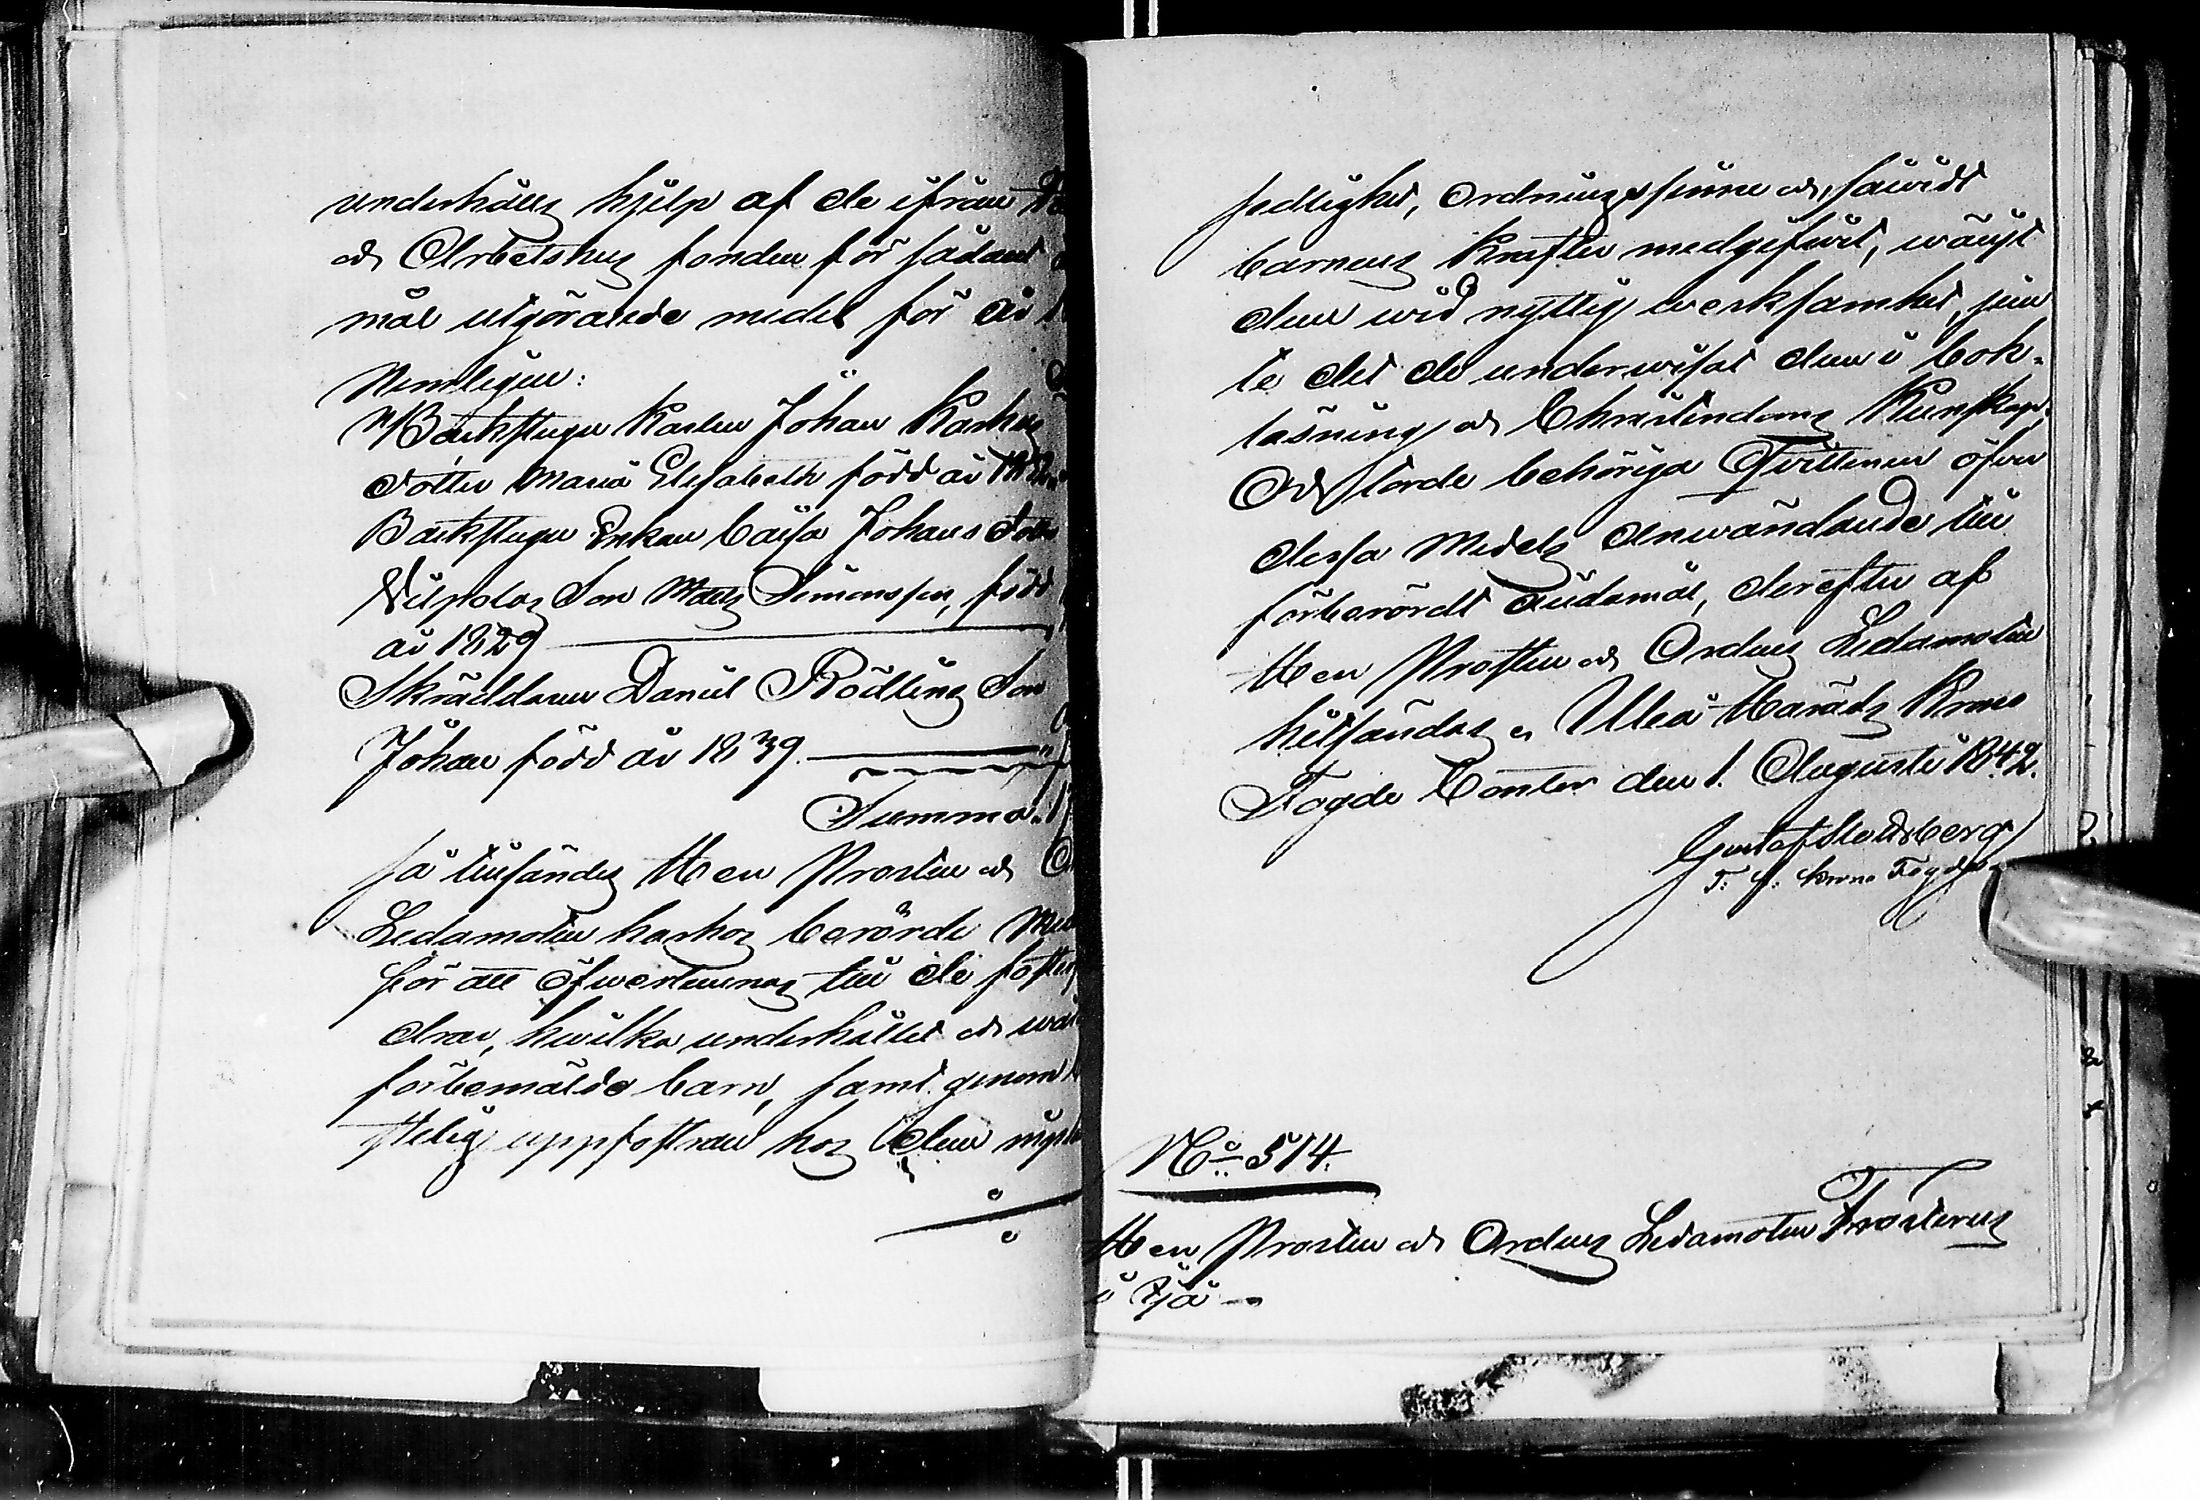 underhålls hjelp af de ifrån
och Arbetshus fonden för sådant
mål utgörande medel för år
Nemligen:
Backstugu Karlen Johan Karhus
dotter Maria Elisabeth född år
Backstugu Enkan Caisa Johans dotter
Son Matts Simonsson, född
år 1829
Skräddaren Daniel Rödlings Son
Johan född år 1839.
Summa
så tillsändes Herr Prosten och
Ledamoten härhos berörde
för att öfverlemnas till de foster
drar, hvilka underhållit och
förbemälde barn, samt genom
uppfostran hos dem
sedlighet, ordningssinne och, såvidt
barnens krafter medgifvit, vänjt
dem vid nyttig verksamhet, jem
te det de undervisat dem i bok-
läsning och Christendoms Kunskap.
Och torde behöriga Qvittencer öfver
dessa medels användande till
förberördt ändamål, derefter af
Herr Prosten och Ordens Ledamoten
hitsändas. Uleå Härads Krono
Fogde Contor den 1. Augusti 1842.
Gustaf
T. f. Krono Fogde
No 514.
Herr Prosten och Ordens Ledamoten Frosterus
i Ijå